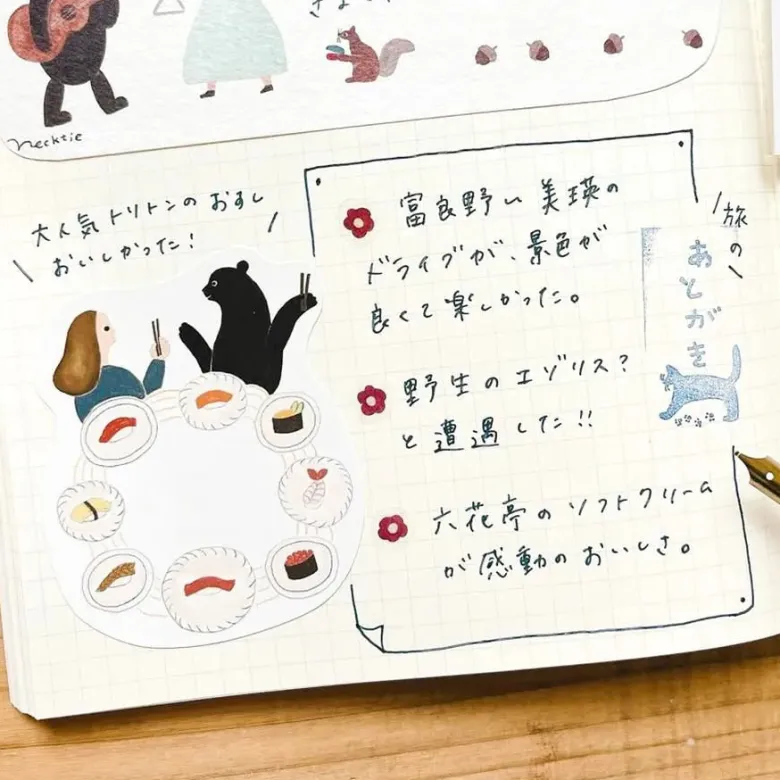 necktie
大人気トリトンのおすし
おいしかった!
旅の
あとがき
富良野〜美瑛の
ドライブが、景色が
良くて楽しかった。
野生のエゾリス?
と遭遇した!!
六花亭のソフトクリーム
が感動のおいしさ。